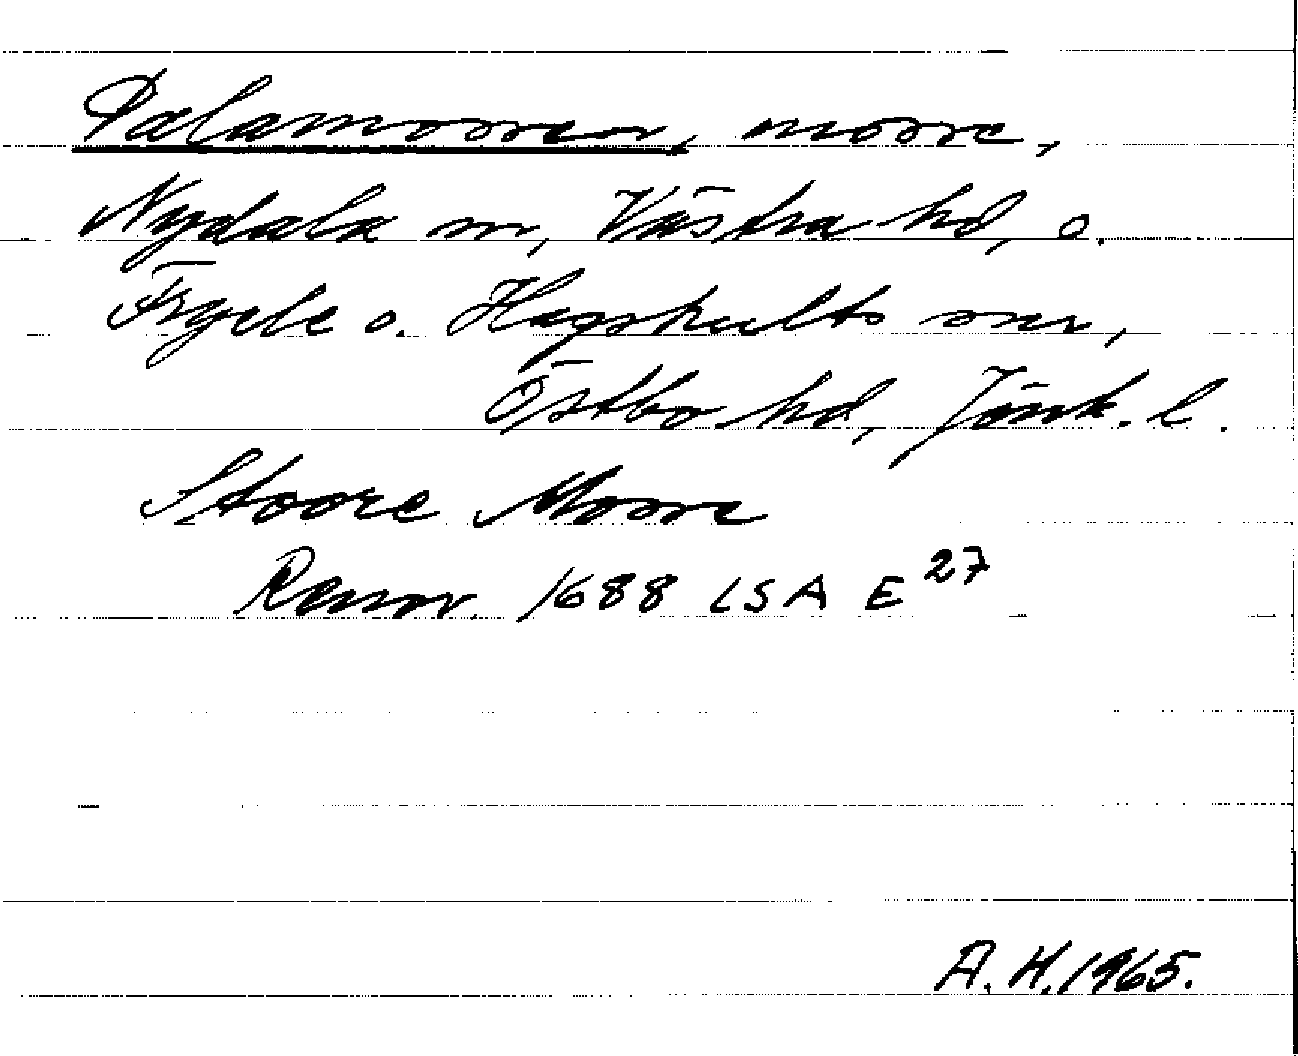 Dalamossen, mosse,
Nydala sn, Västra hd, o.
Fryele o. Hagshults snr,
Östbo hd, Jönk. l.
Stoore Mosse
Renov. 1688 LSA E 27
A. H. 1965.